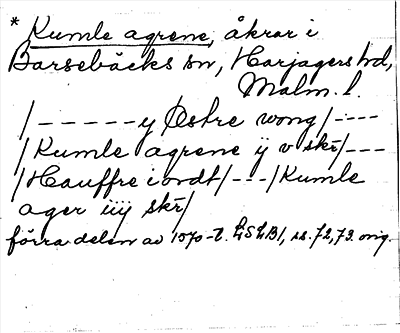 * Kumle agrene, åkrar i
Barsebäcks sn, Harjagers hd,
Malm. l.
/- - - - - y Østre wong/- - - -
/Kumle agrene ÿ v skr/- - -
/Hauffre iordt/- - -/Kumle
ager iiÿ skr/
förra delen av 1570-t. LSLB1, ss. 72, 73. orig.